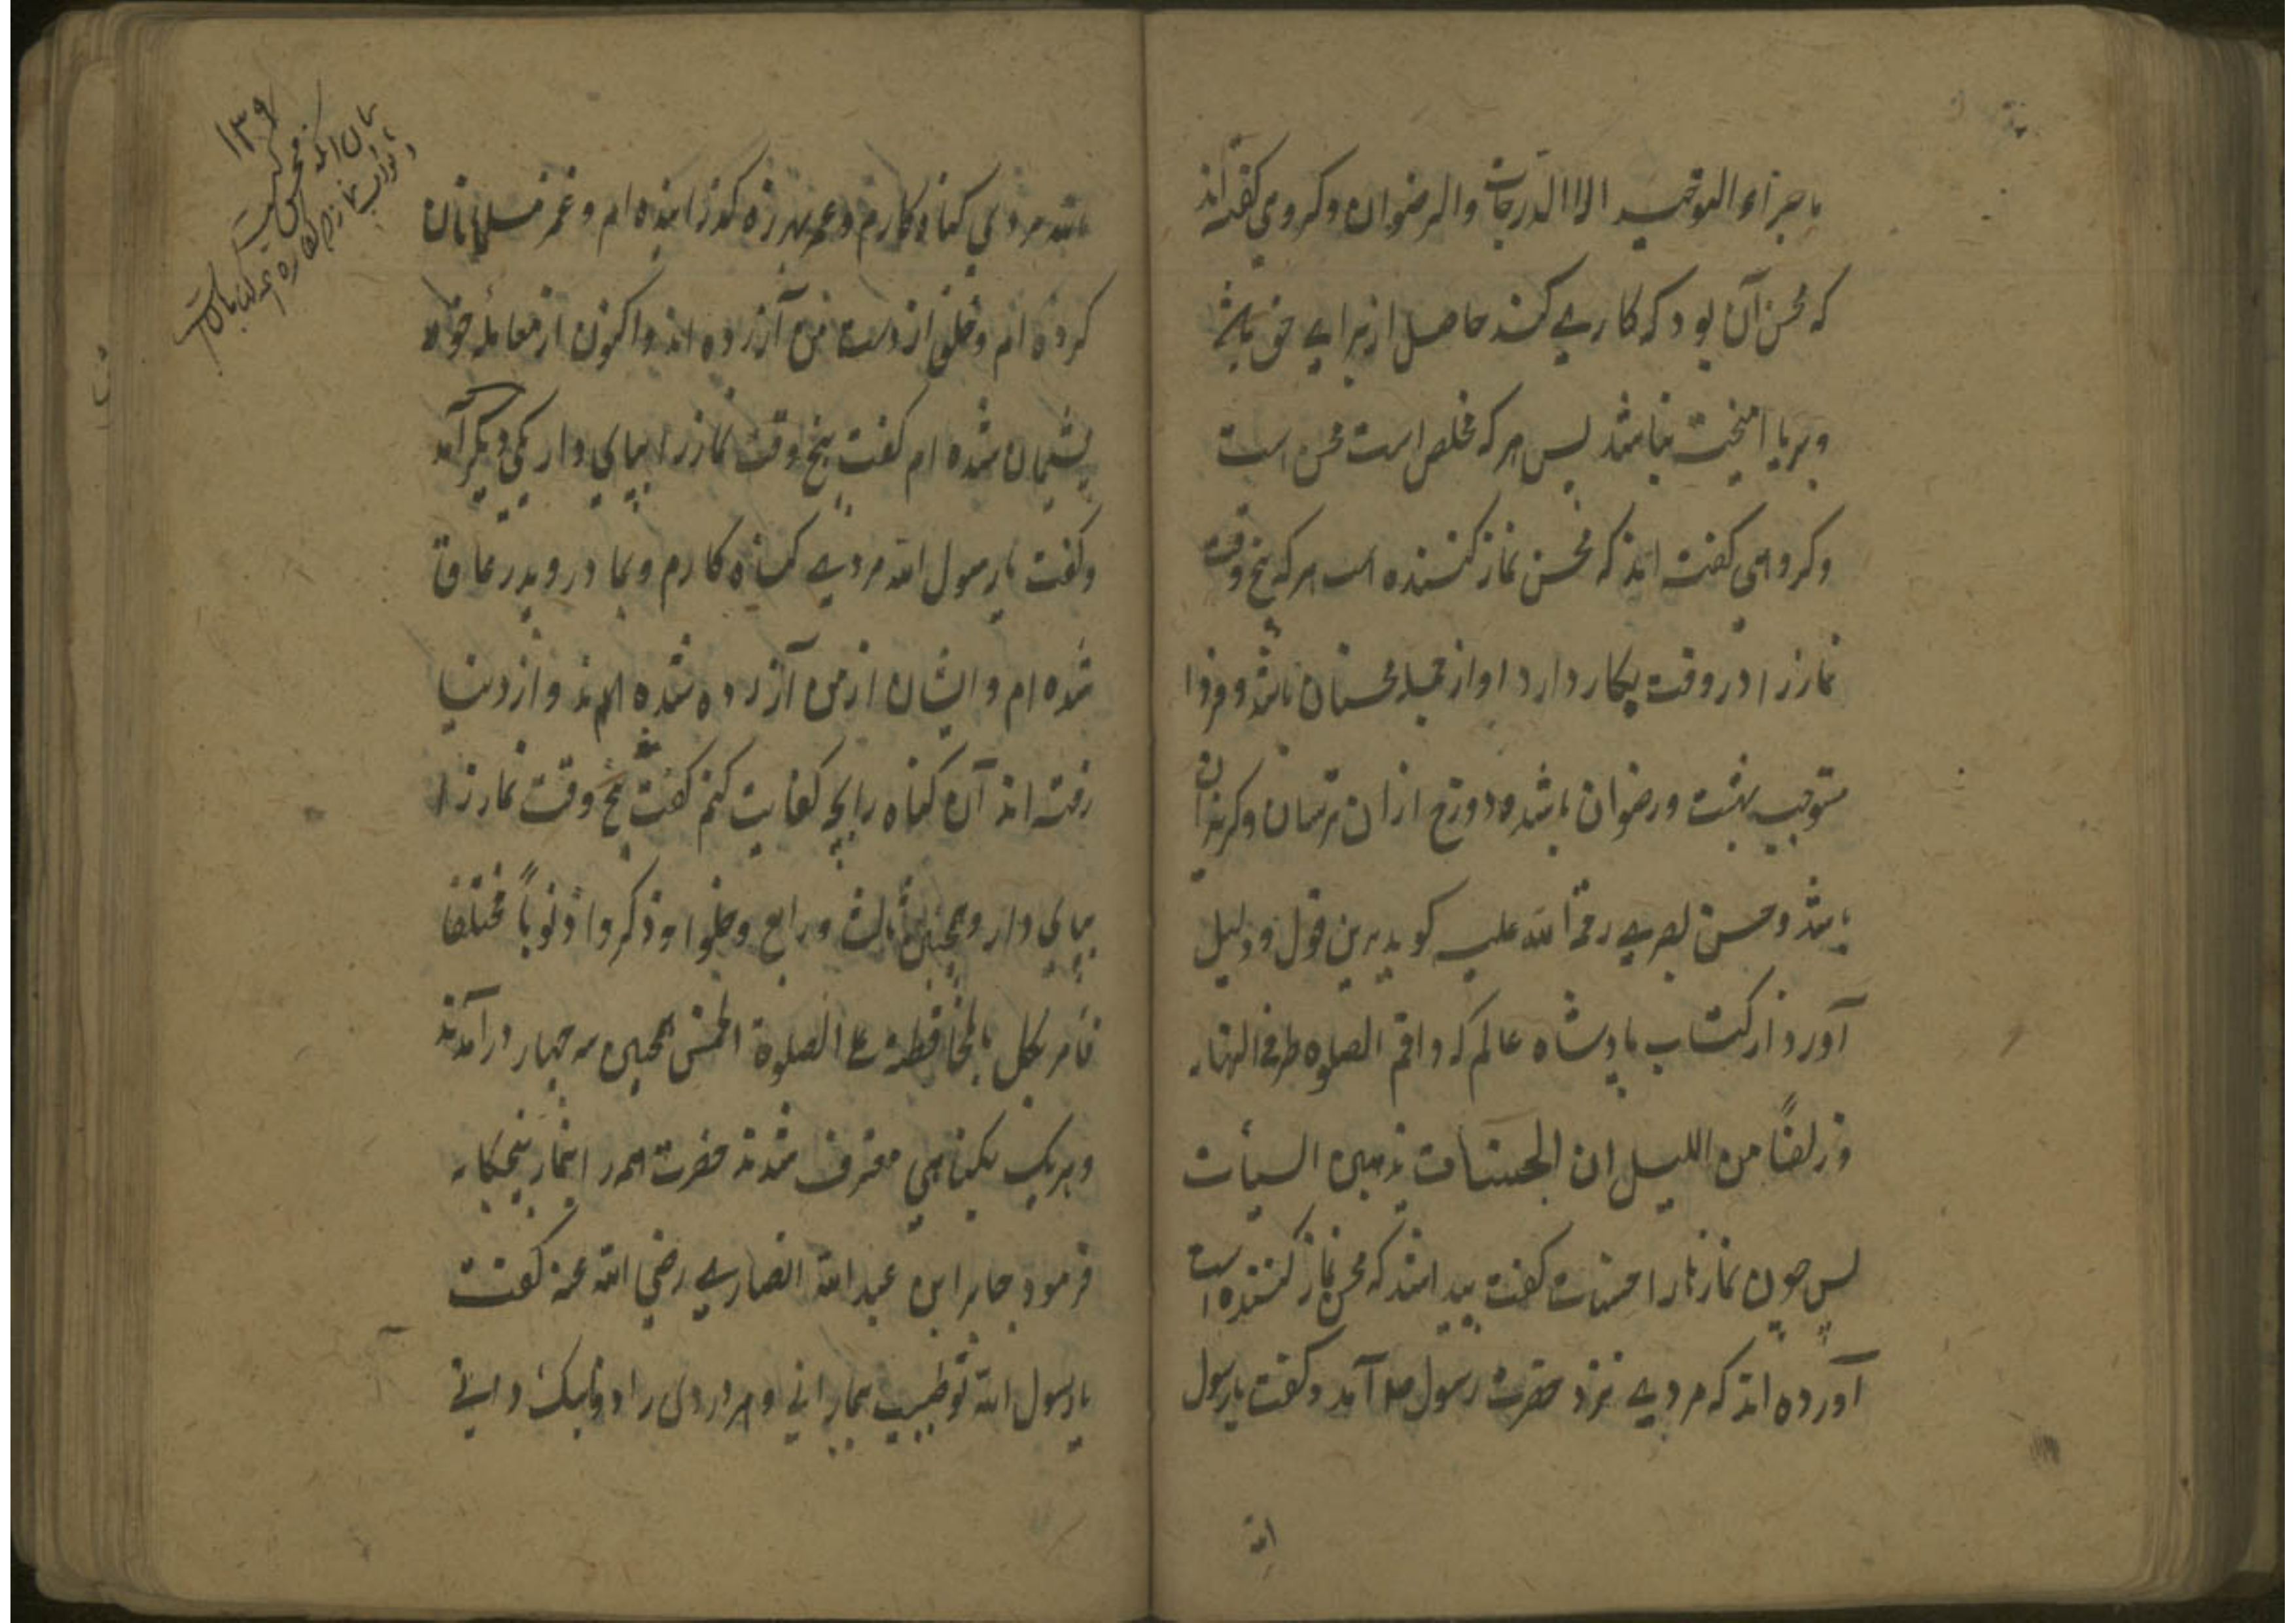 ما جزاء التوحید الا الدرجات والرضوان وکروهی کفته‌اند
که محسن آن بود که کاری کند حاصل از برای حق باشد
وبریا امیخت نباشد پس هر که مخلص است محسن است
وکروهی کفته اند که محسن نماز کننده است هر که پنج وقت
نماز را در وقت بکار دارد او از جمله محسنان باشد وفردا
مستوجب بهشت ورضوان باشد ودوزخ ازان ترسان وکریزان
باشد وحسن بصری رحمة الله علیه کوید برین قول ودلیل
آورد از کتاب پادشاه عالم که واقم الصلوه طرفی النهار
وزلفًا من اللیل ان الحسنات یذهبن السیأت
پس چون نمازها را حسنات کفت بیداشد که محسن نماز کننده است
آورده اند که مردی نزد حضرت رسول صلعم آمد وکفت یارسول
الله
۱۳۹
بیان انکه محسن کیست
الله مردی کناه کارم وعمر بهرزه کذرانیده ام وغمز مسلمانان
کرده ام وخلق از دست من آزرده اند واکنون از معامله خود
پشیمان شده ام کفت پنج وقت نماز را بپای دار یکی دیکر آمد
وکفت یارسول الله مردی کناه کارم وبمادر وپدر عاق
شده ام وایشان از من آزرده شده اند واز دنیا
رفته اند آن کناه را بچه کفایت کنم کفت پنج وقت نماز را
بپای دار وهمچنین ثالث ورابع وخلوا وذکروا ذنوباً مختلفا
فامر بکل بالمحافظة علی الصلوة الخمس همچنین سه چهار درآمدند
وهریک بکناهی معترف شدند حضرت همه را بنماز پنجکانه
فرمود جابر ابن عبدالله انصاری رضی الله عنه کفت
یارسول الله تو طبیب بیمارانی وهر دردی را دوای نیک دانی